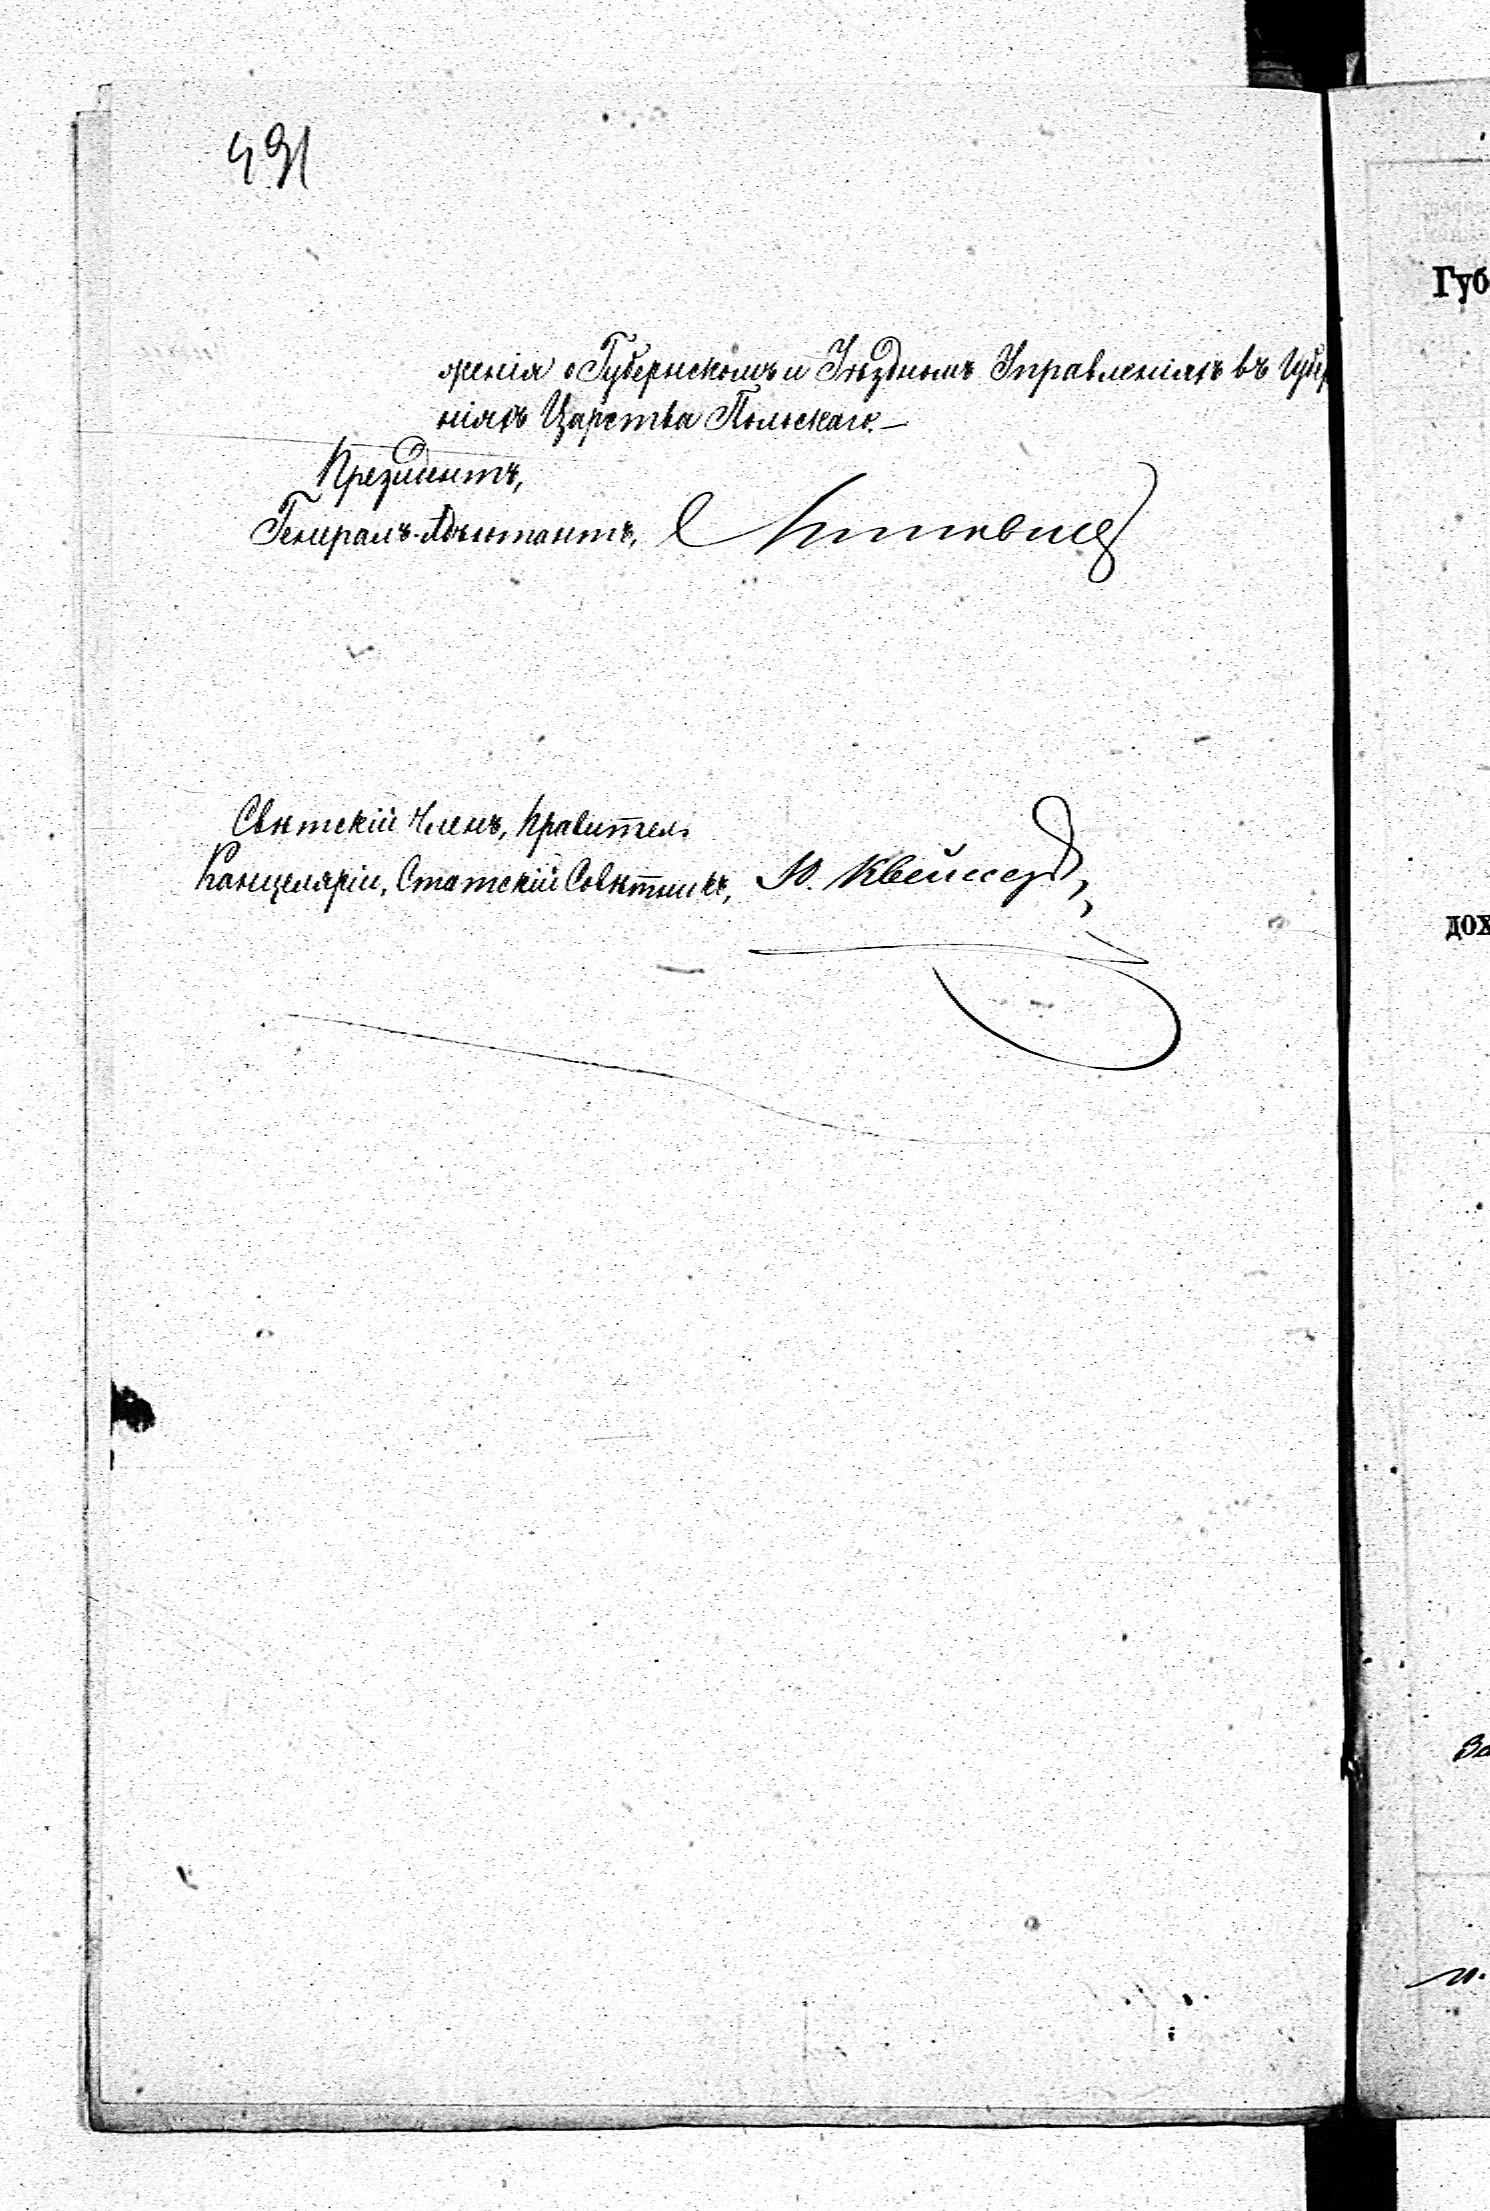 491
женія о Губернскомъ и Уѣздномъ Управленіяхъ въ Губер
ніяхъ Царства Польскаго.—
Президентъ,
Генералъ-Адъютантъ,
Свѣтскій Членъ, Правитель
Канцеляріи, Статскій Совѣтникъ,
Губ
дох
За